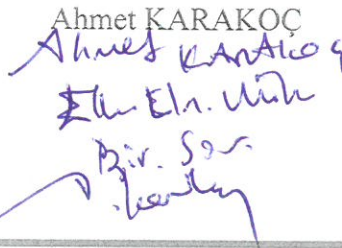 Ahmet KARAKOÇ
Ahmet KARAKOÇ
Elk. Eln. Müh
Bir. Sor.